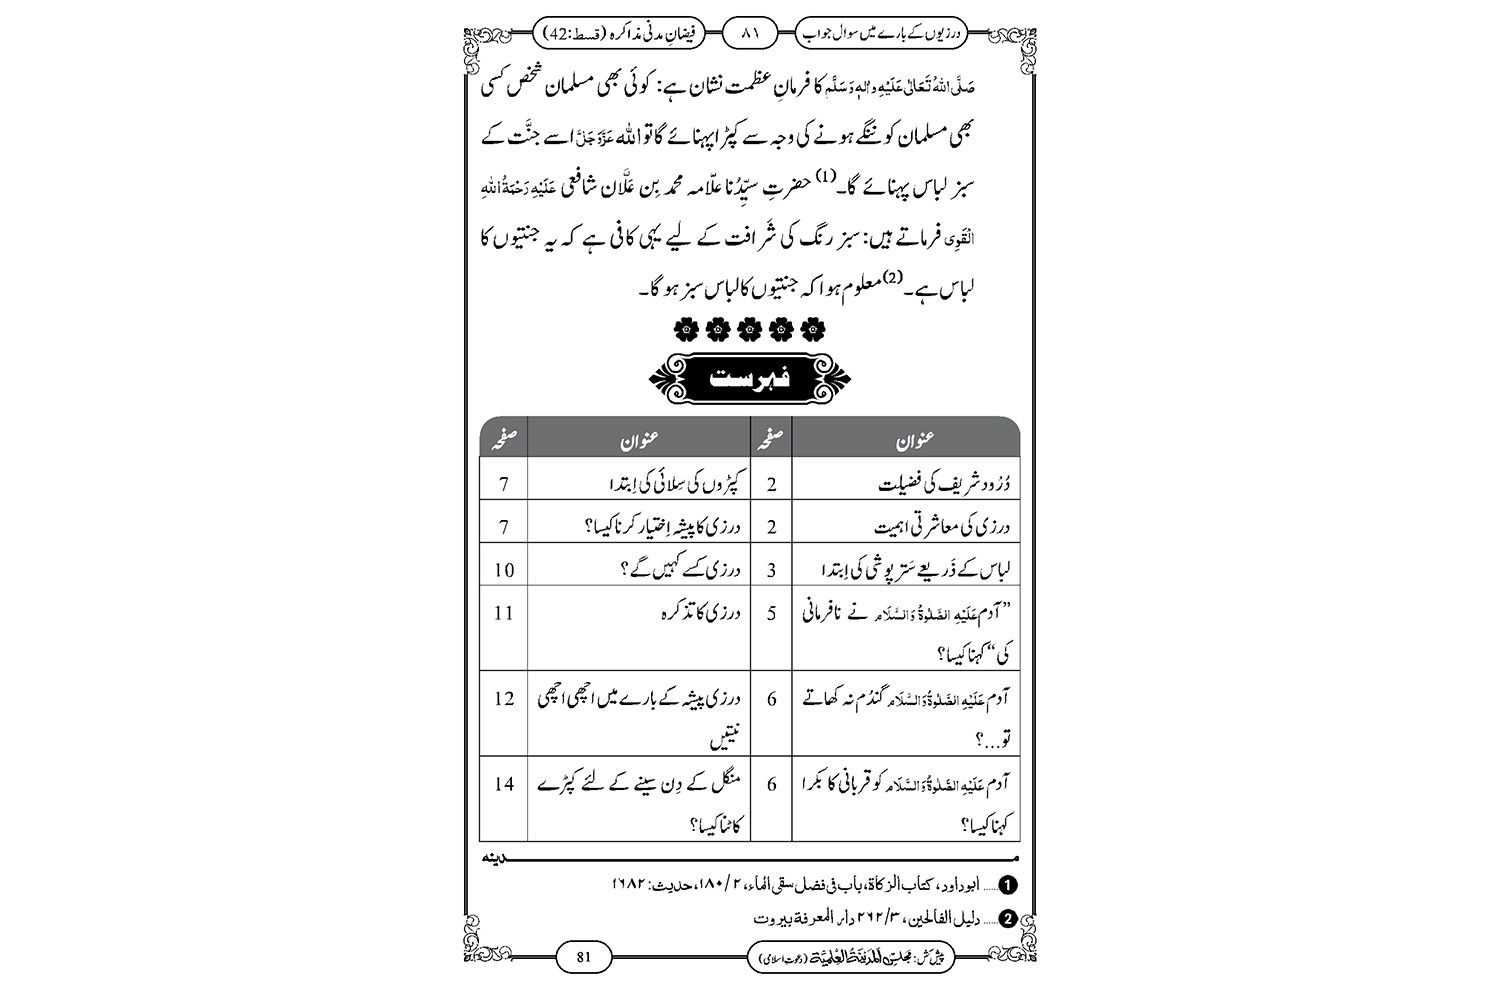 درزیوں کے بارے میں سوال جواب ۸۱ فیضانِ مدنی مذاکرہ (قسط:42)
صَلَّی اللہُ تَعَالٰی عَلَیْہِ واٰلہٖ وَسَلَّم کا فرمانِ عظمت نشان ہے: کوئی بھی مسلمان شخص کسی
بھی مسلمان کو ننگے ہونے کی وجہ سے کپڑا پہنائے گا تو اللہ عَزَّوَجَلَّ اسے جنَّت کے
سبز لباس پہنائے گا۔(1) حضرتِ سیِّدُنا علّامہ محمد بِن عَلَّان شافعی عَلَیْہِ رَحْمَۃُ اللہِ
الْقَوِی فرماتے ہیں: سبز رنگ کی شَرافت کے لیے یہی کافی ہے کہ یہ جنتیوں کا
لباس ہے۔(2) معلوم ہوا کہ جنتیوں کا لباس سبز ہو گا۔
فہرست
عنوان صفحہ عنوان صفحہ
دُرُود شریف کی فضیلت 2 کپڑوں کی سِلائی کی اِبتدا 7
درزی کی معاشرتی اہمیت 2 درزی کا پیشہ اِختیار کرنا کیسا؟ 7
لباس کے ذَریعے سَتر پوشی کی اِبتدا 3 درزی کسے کہیں گے؟ 10
”آدم عَلَیْہِ الصَّلٰوۃُ وَالسَّلَام نے نافرمانی 5 درزی کا تذکرہ 11
کی“ کہنا کیسا؟
آدم عَلَیْہِ الصَّلٰوۃُ وَالسَّلَام گندُم نہ کھاتے 6 درزی پیشہ کے بارے میں اچھی اچھی 12
تو...؟ نیتیں
آدم عَلَیْہِ الصَّلٰوۃُ وَالسَّلَام کو قربانی کا بکرا 6 منگل کے دِن سینے کے لئے کپڑے 14
کہنا کیسا؟ کاٹنا کیسا؟
مـــدینہ
1..... ابوداود، کتاب الزکاة، باب فی فضل سقی الماء، ۲/ ۱۸۰، حدیث: ۱۶۸۲
2..... دلیل الفالحین، ۳/ ۲۶۲ دار المعرفة بیروت
پیش کش: مجلس اَلْمَدِیْنَۃُ الْعِلْمِیَّۃ (دعوتِ اسلامی) 81